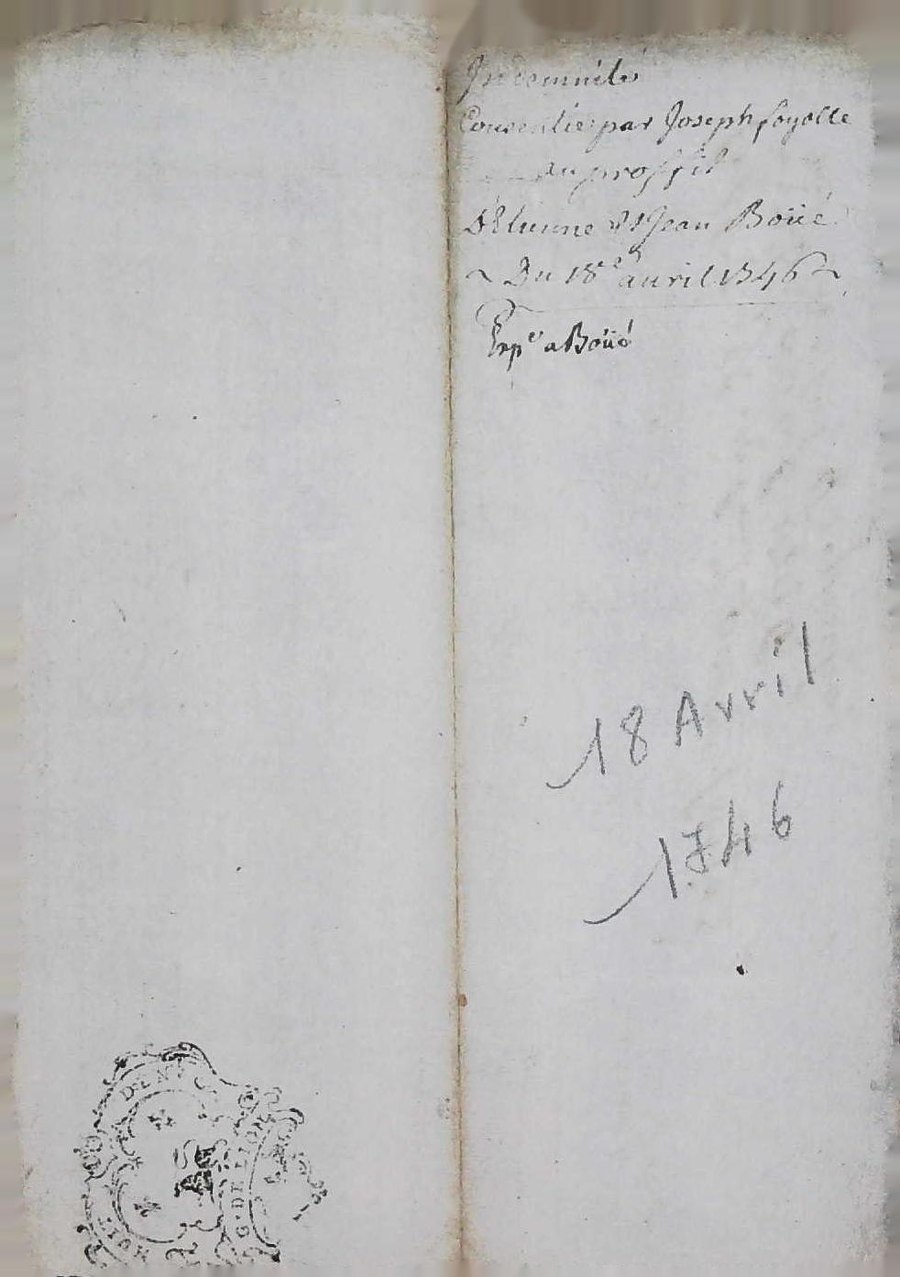 Indemnité
Consentie par Joseph fayolle
au proffit
D'Etienne et Jean Boüé
Du 18e avril 1746
Exp.e a Boüé
18 Avril
1746
HUIT DEN
G. DE LION